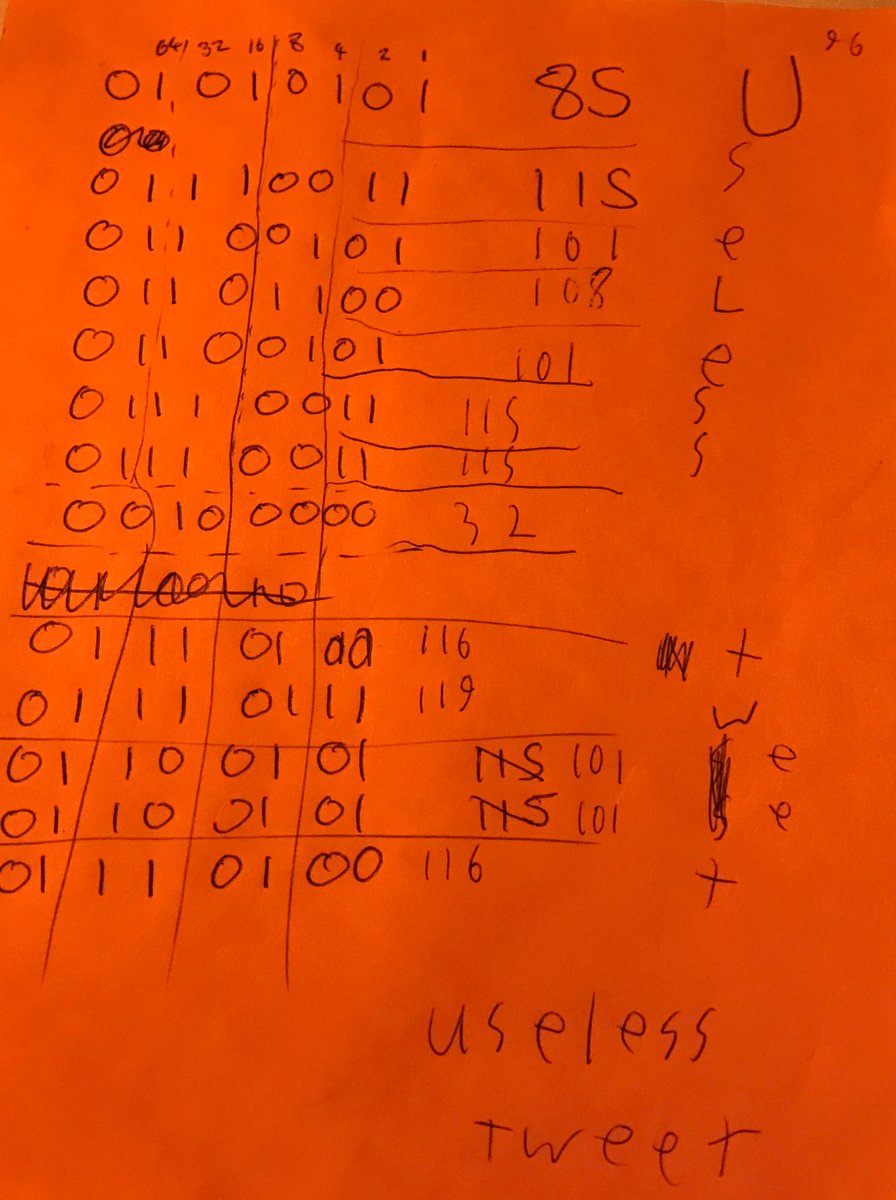 64 32 16 8 4 2 1 96
01 01 0101 85 U
0111 0011 115 s
011 00101 101 e
011 01100 108 L
011 00101 101 e
0111 0011 115 s
0111 0011 115 s
0010 0000 32
01 11 01 00 116 t
01 11 0111 119 w
01 10 01 01 115 101 e
01 10 01 01 115 101 e
01 11 01 00 116 t
useless
tweet